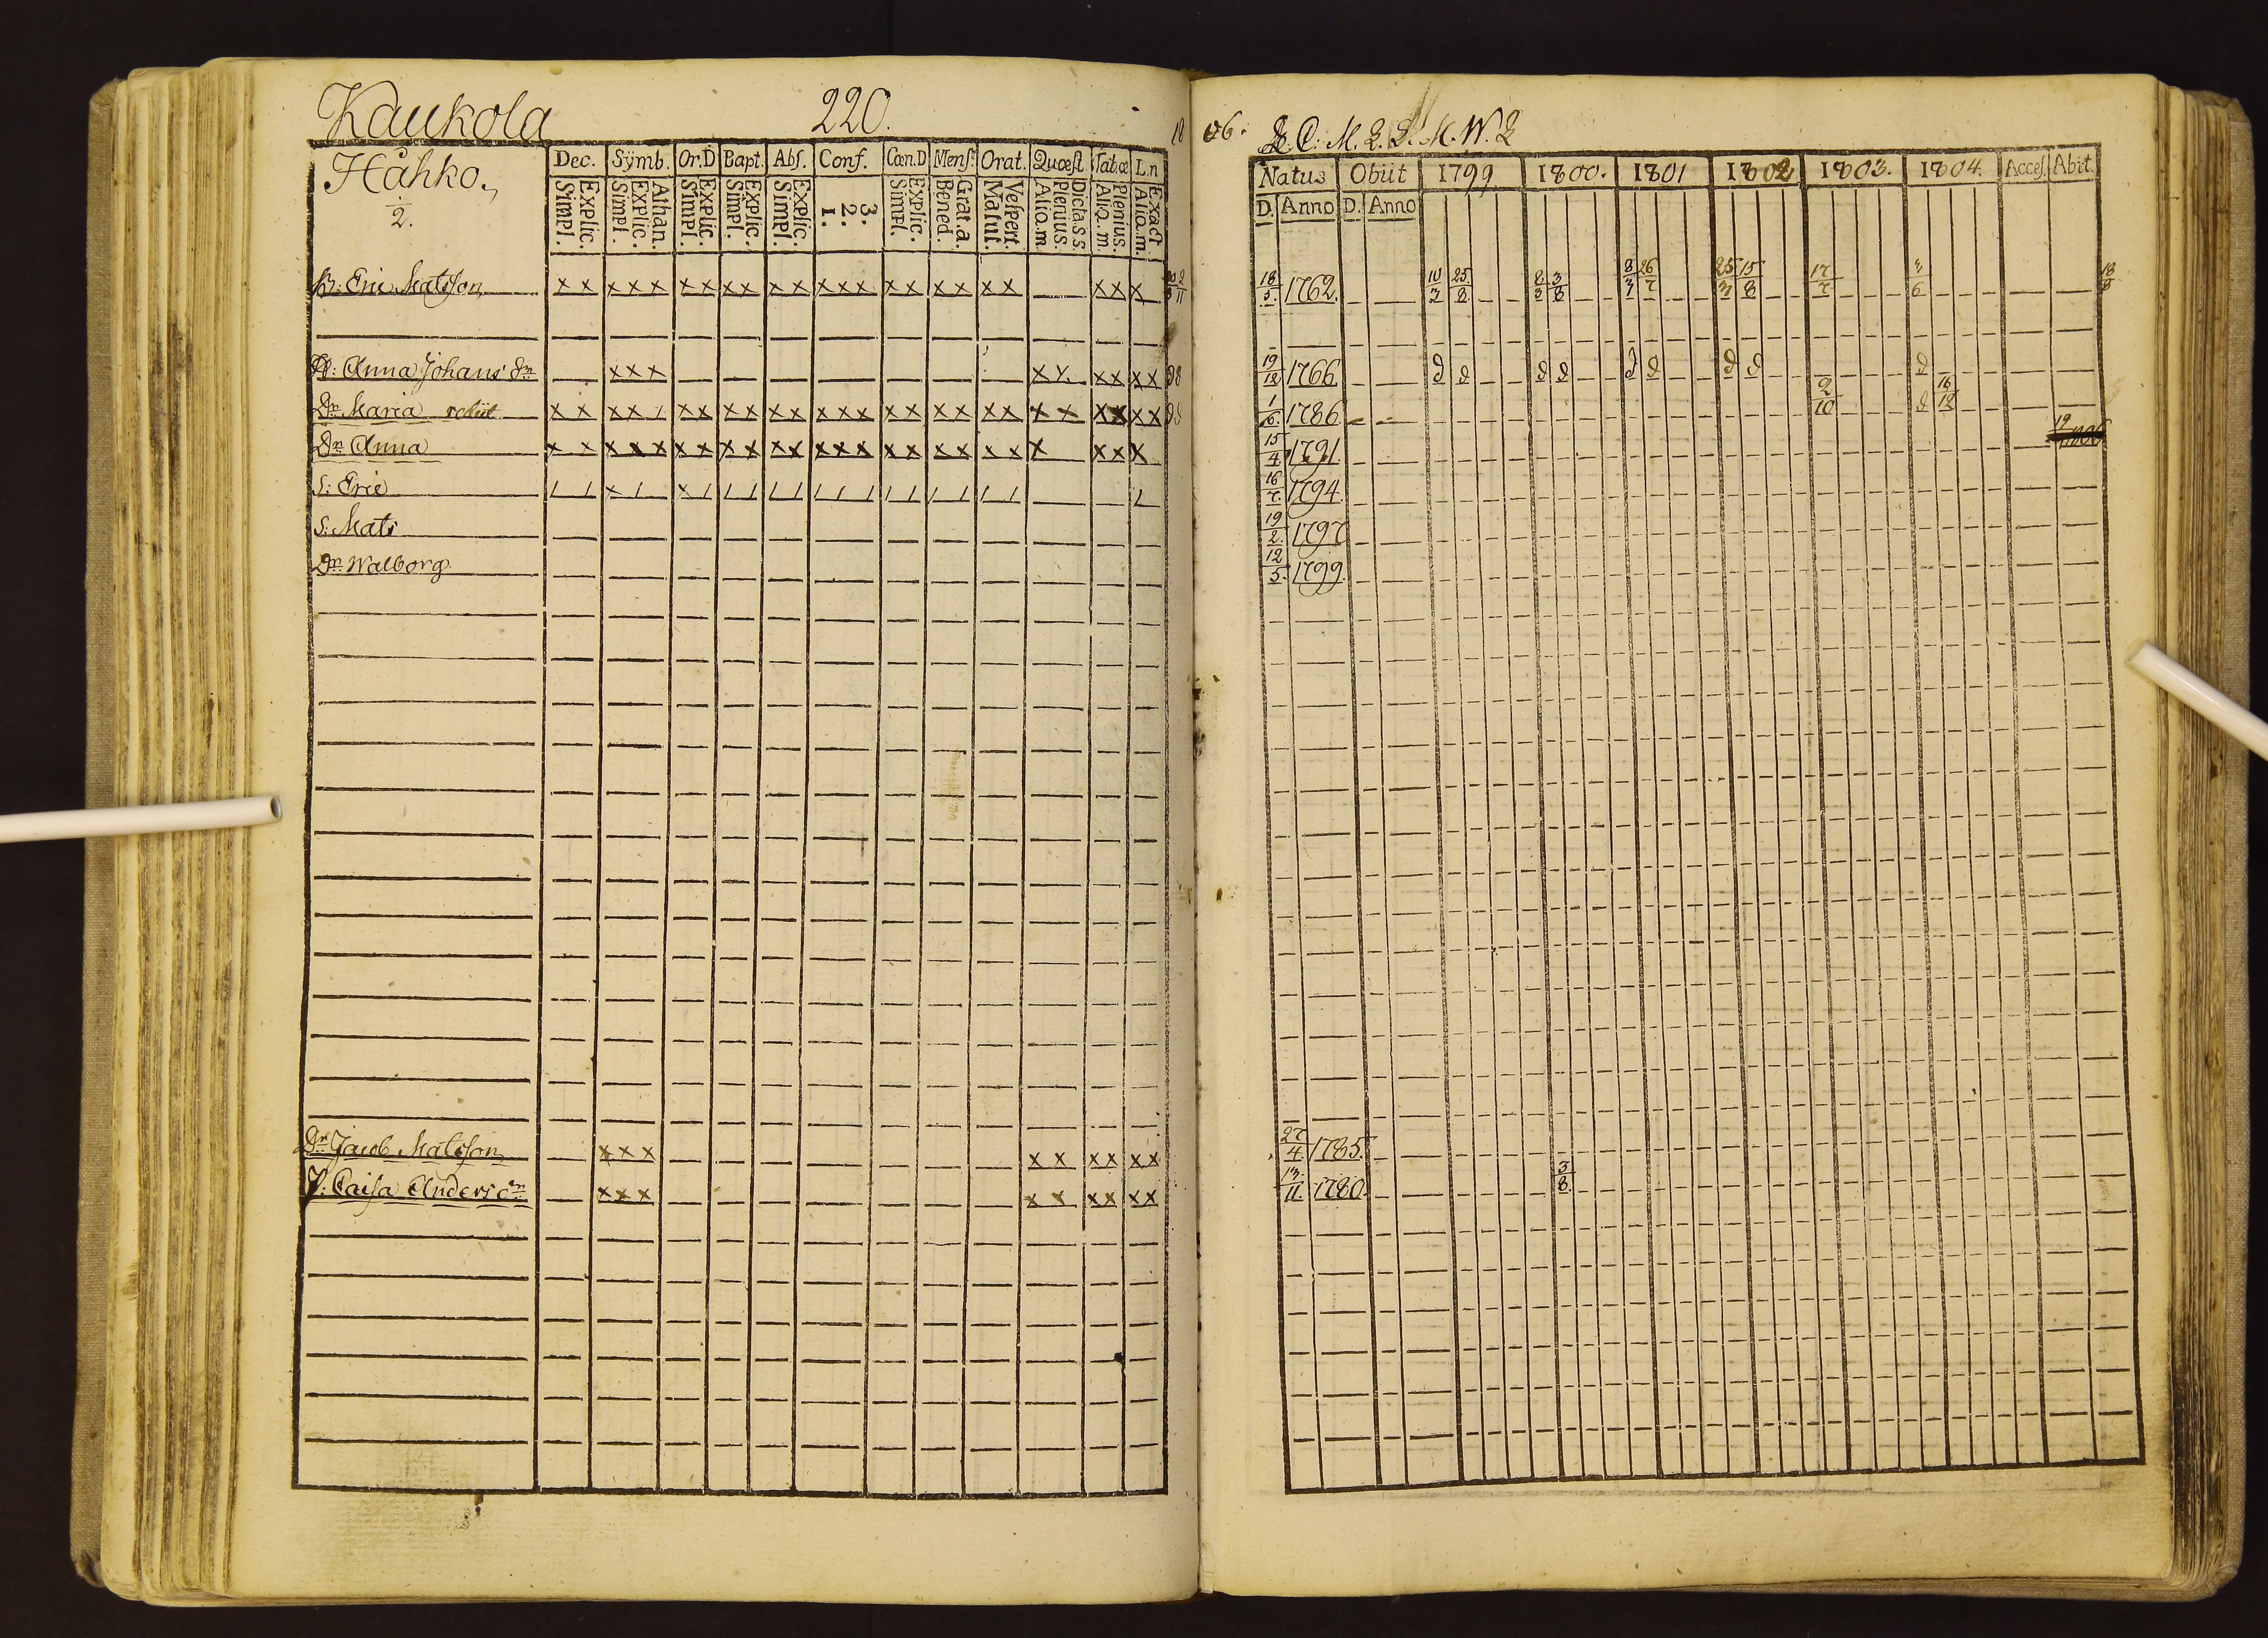 Kaukola 220.
Håhko,
2.
Dec. Symb. Or.D Bapt. Abs. Conf. Cœn.D Mens. Orat. Quæst. Tab.œ L.n
Explic. Simpl. Athan. Explic. Simpl. Explic. Simpl. Explic. Simpl. Explic. Simpl. 3. 2. 1. Explic. Simpl. Grat.a. Bened. Vespert. Matut. Dicta.s.s. Plenius. Aliq.m. Plenius. Aliq.m. Exact Aliq.m.
B: Eric Matsson x x x x x x x x x x x x x x x x x x x x x x x
H: Anna Johans dr x x x x x x x x x
Dr Maria x x x x / x x x x x x x x x x x x x x x x x x x x x x
Dr Anna x x x x x x x x x x x x x x x x x x x x x x x
S: Eric / / x / x / / / / / / / / / / / / / / /
S: Mats
Dr Walborg
Dr Jacob Matsson x x x x x x x x x
P: Caisa Anders dr x x x x x x x x x
06.
Natus Obiit 1799 1800. 1801 1802 1803. 1804. Access. Abit.
D. Anno D. Anno
18/5. 1762. 10/3 25/8 8/3 3/8 8/3 26/7 25/3 15/8 17/7 18/8
19/12 1766 d d d d d d d d d
1/6. 1786. 2/10 d 16/12
15/4 1791
16/7. 1794.
19/2. 1797
12/5. 1799.
27/4 1785.
13/11. 1780. 3/8.